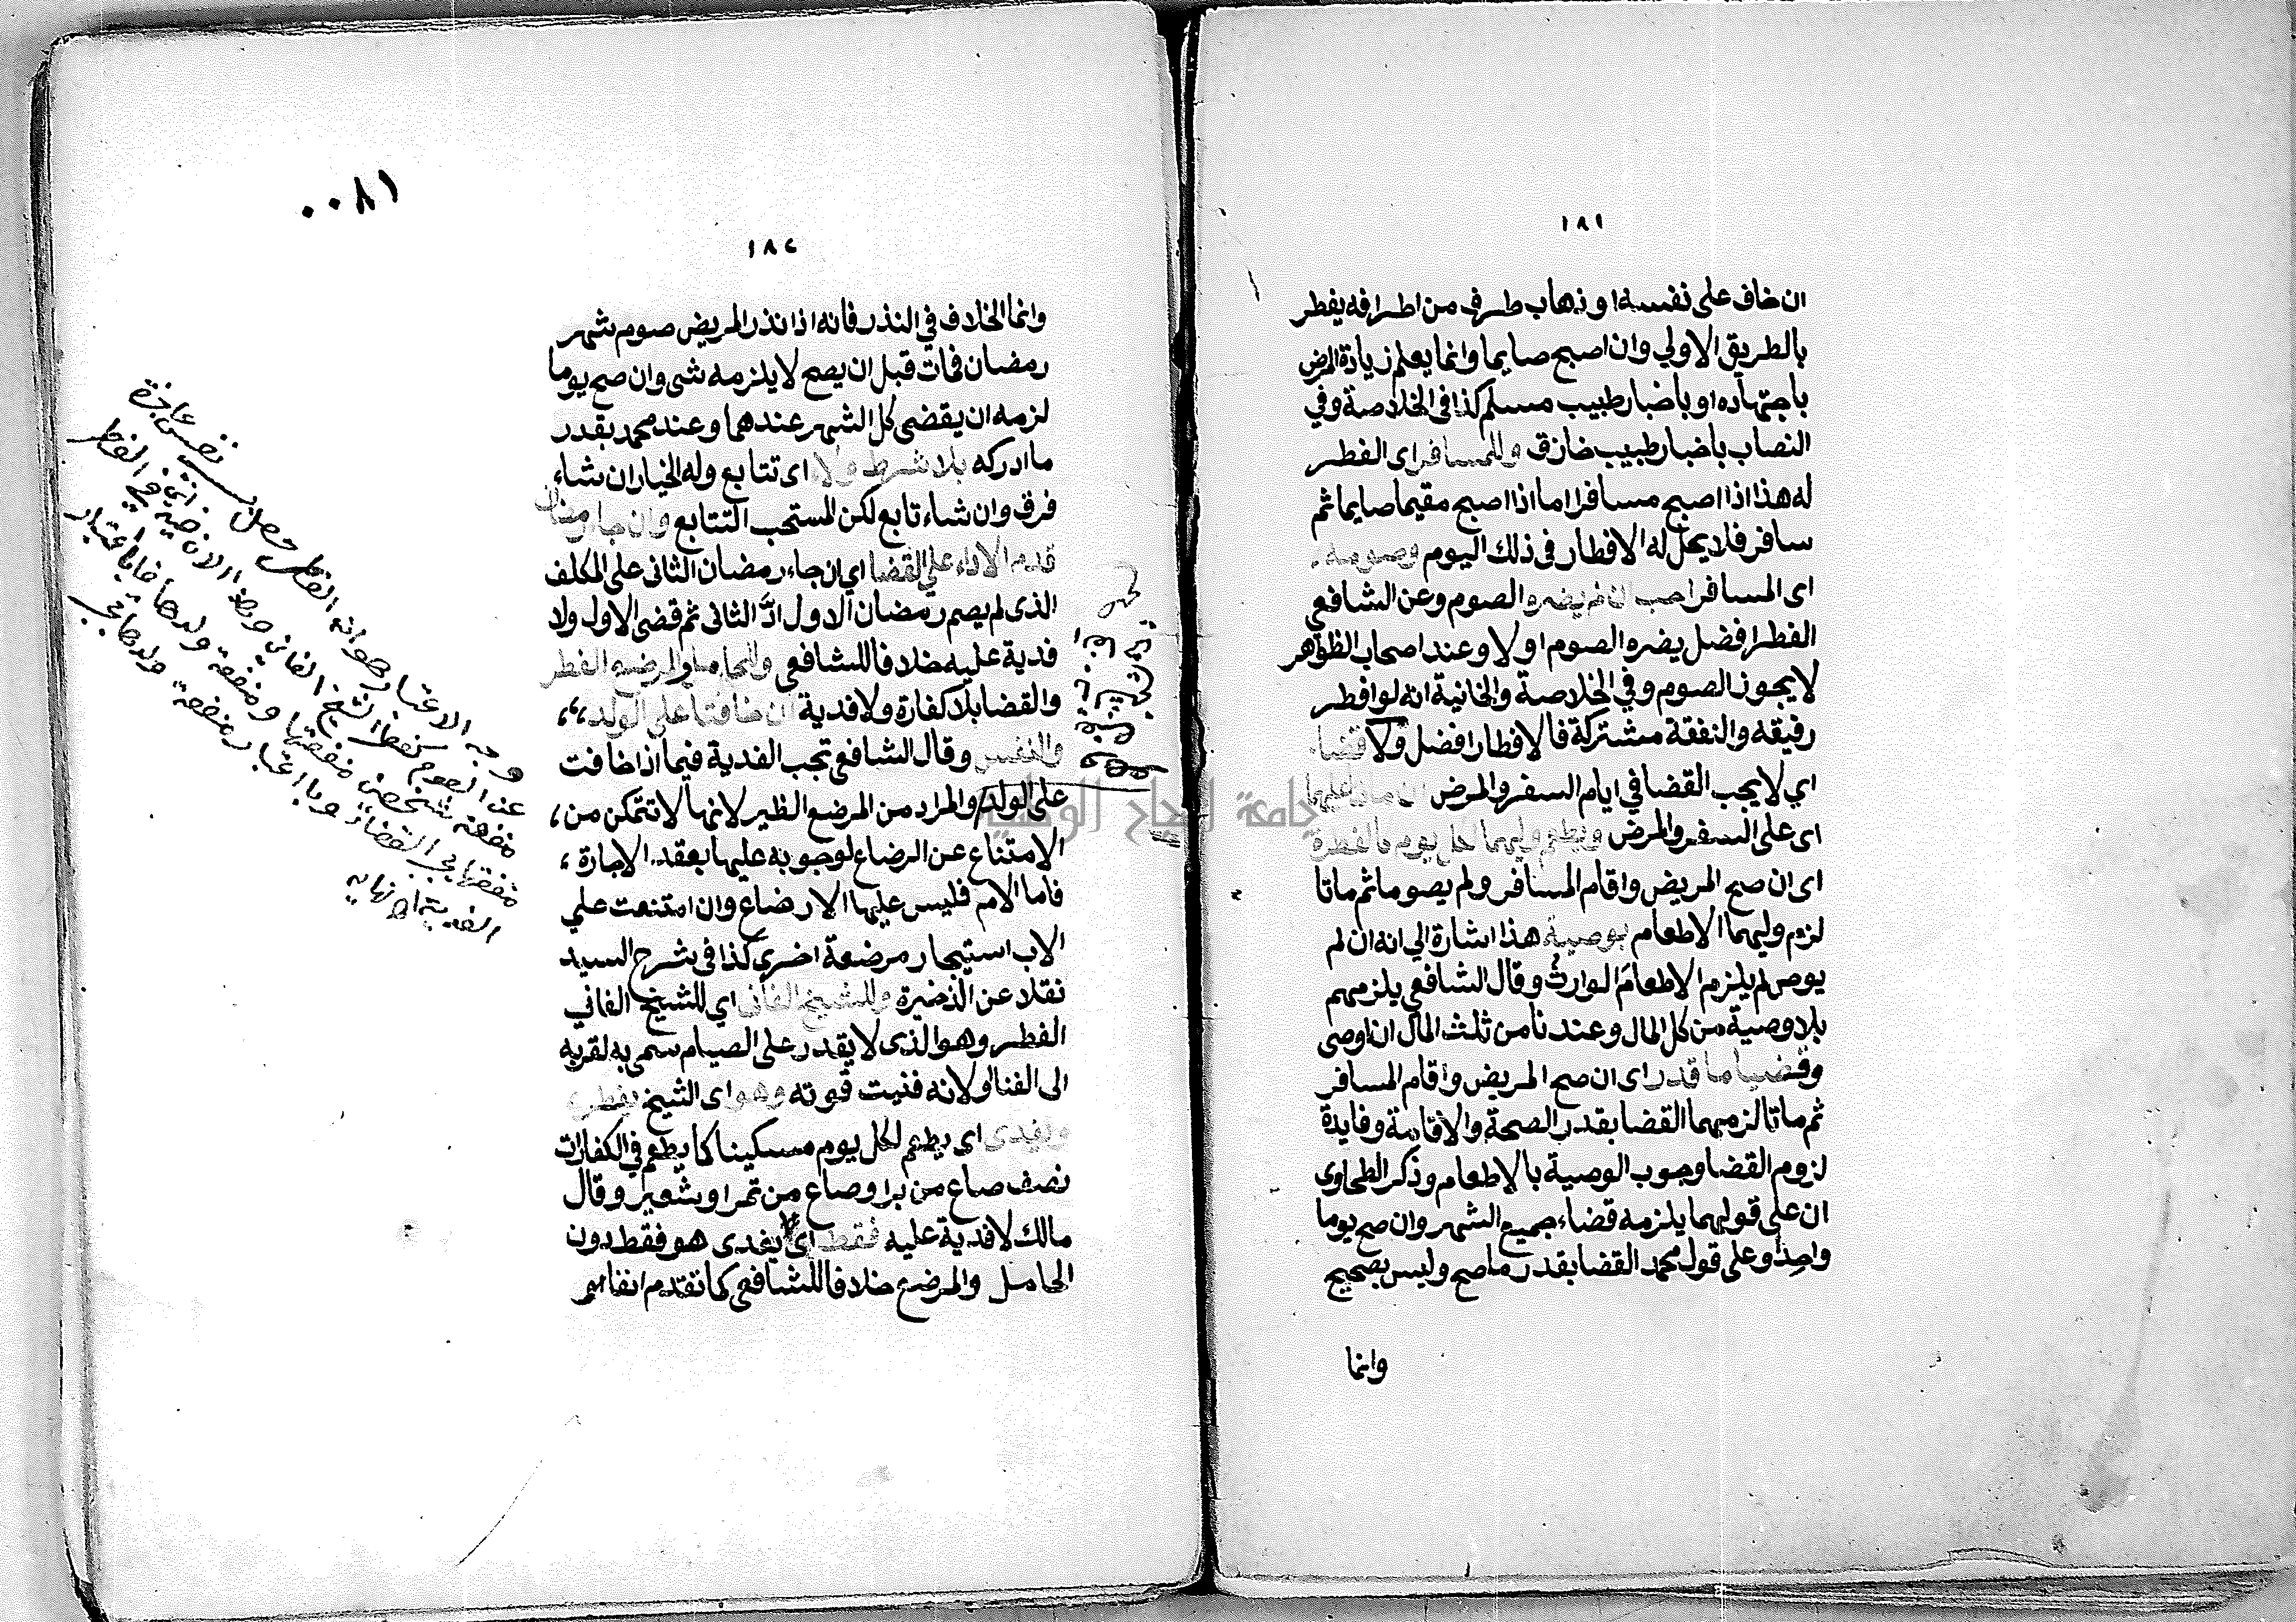 ١٨١
ان خاف على نفسه او ذهاب طرف من اطرافه يفطر
بالطريق الاولي وان اصبح صايما وانما يعلم زيادة المرض
باجتهاده او باخبار طبيب مسلم كذا فى الخلاصة وفي
النصاب باخبار طبيب حاذق وللمسافر اى الفطر
له هذا اذا اصبح مسافرا اما اذا اصبح مقيما صايما ثم
سافر فلا يحل له الافطار فى ذلك اليوم وصومه
اى المسافر احب ان لم يضره الصوم وعن الشافعي
الفطر افضل يضره الصوم او لا وعند اصحاب الظواهر
لا يجوز الصوم وفي الخلاصة والخانية انه لو افطر
رفيقه والنفقة مشتركة فالافطار افضل ولا قضاء
اي لا يجب القضا في ايام السفر والمرض ان ماتا عليهما
اى على السفر والمرض ويطعم وليهما لكل يوم كالفطرة
اى ان صح المريض واقام المسافر ولم يصوما ثم ماتا
لزم وليهما الاطعام بوصية هذا اشارة الي انه ان لم
يوص لم يلزم الاطعام الوارث وقال الشافعي يلزمهم
بلا وصية من كل المال وعندنا من ثلث المال ان اوصى
وقضيا ما قدرا اى ان صح المريض واقام المسافر
ثم ماتا لزمهما القضا بقدر الصحة والاقامة وفايدة
لزوم القضا وجوب الوصية بالاطعام وذكر الطحاوى
ان على قولهما يلزمه قضاء جميع الشهر وان صح يوما
واحدا وعلى قول محمد القضا بقدر ما صح وليس بصحيح
وانما
١٨٠٠
١٨٢
وانما الخلاف في النذر فانه اذا نذر المريض صوم شهر
رمضان فمات قبل ان يصح لا يلزمه شى وان صح يوما
لزمه ان يقضى كل الشهر عندهما وعند محمد بقدر
ما ادركه بلا شرط ولاء اى تتابع وله الخيار ان شاء
فرق وان شاء تابع لكن المستحب التتابع وان جاء رمضان
قدم الاداء على القضا اي ان جاء رمضان الثانى على المكلف
الذى لم يصم رمضان الاول ادّى الثانى ثم قضى الاول ولا
فدية عليه خلافا للشافعى وللحامل والمرضع الفطر
والقضا بلا كفارة ولا فدية ان خافتا على الولد
والنفس وقال الشافعى تجب الفدية فيما اذا خافت
على الولد والمراد من المرضع الظير لانها لا تتمكن من
الامتناع عن الرضاع لوجوبه عليها بعقد الاجارة
فاما الام فليس عليها الارضاع وان امتنعت علي
الاب استيجار مرضعة اخرى كذا فى شرح السيد
نقلا عن الذخيرة وللشيخ الفانى اي للشيخ الفاني
الفطر وهو الذى لا يقدر على الصيام سمى به لقربه
الى الفنا او لانه فنيت قوته وهو اى الشيخ يفطر
ويفدى اى يطعم لكل يوم مسكينا كما يطعم في الكفارات
نصف صاع من بر او صاع من تمر او شعير وقال
مالك لا فدية عليه فقط اى يفدى هو فقط دون
الحامل والمرضع خلافا للشافعى كما تقدم انفا
وجه الاعتبار هو انه افطار حصل بسبب نفس عاجزة
عن الصوم كفطر الشيخ الفاني وهذا لان في الفطر
منفعة شخصين منفعتها ومنفعة ولدها فباعتبار
منفعتها يجب القضاء وباعتبار منفعة ولدها يجب
الفدية اه نهاية
جامعة النجاح الوطنية